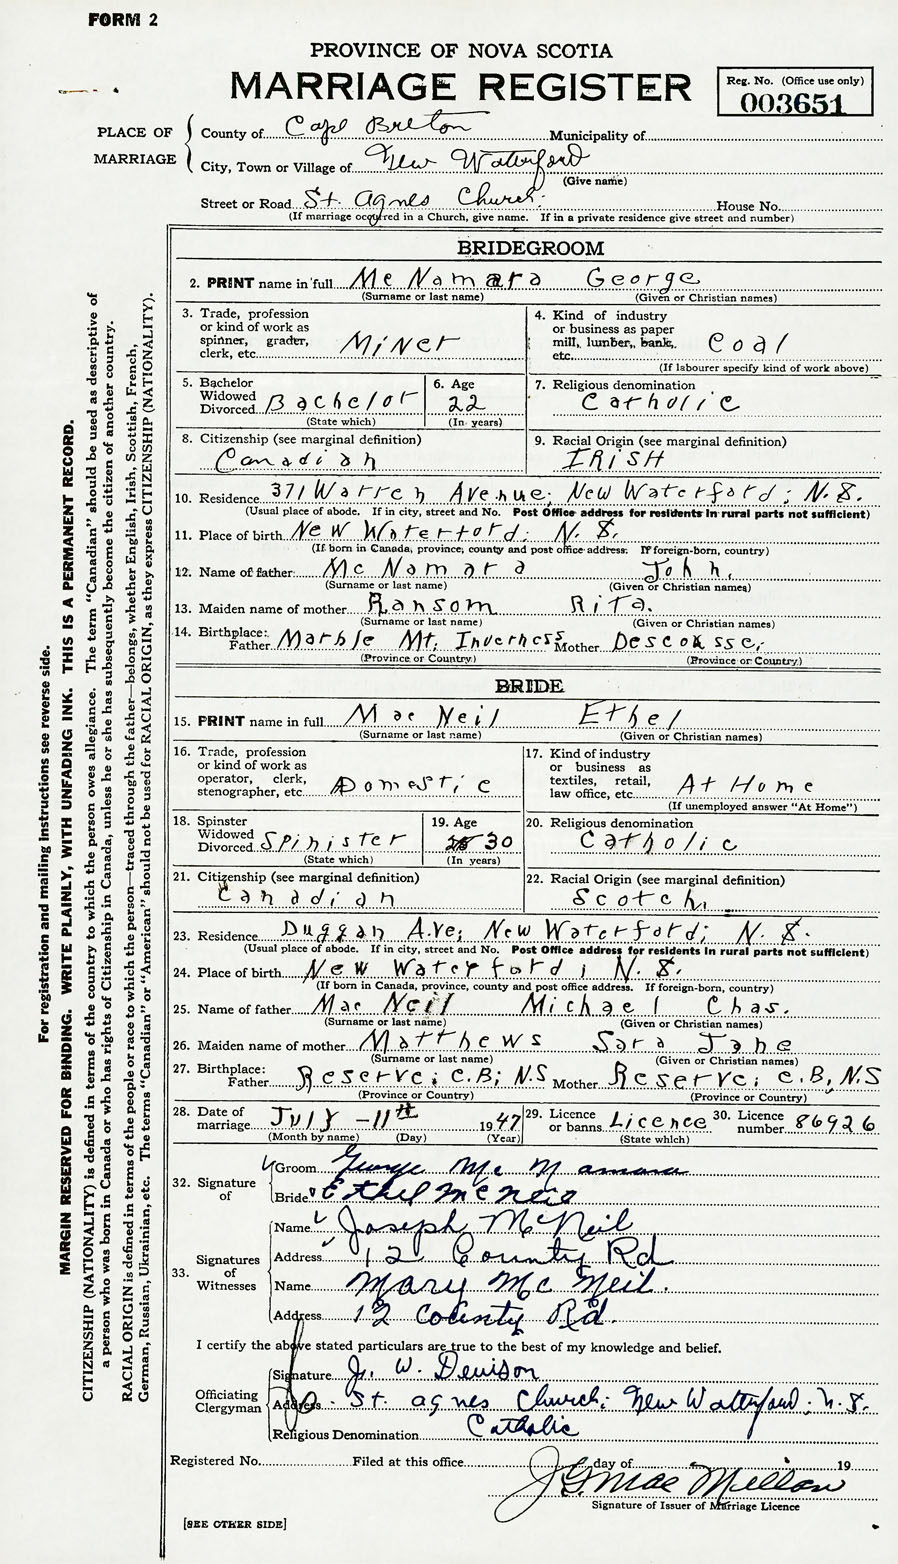 FORM 2
PROVINCE OF NOVA SCOTIA
MARRIAGE REGISTER
Reg. No. (Office use only)
003651
PLACE OF MARRIAGE
County of Cape Breton Municipality of
City, Town or Village of New Waterford
(Give name)
Street or Road St. Agnes Church. House No.
(If marriage occured in a Church, give name. If in a private residence give street and number)
BRIDEGROOM
2. PRINT name in full Mc Namara George
(Surname or last name) (Given or Christian names)
3. Trade, profession or kind of work as spinner, grader, clerk, etc. Miner
4. Kind of industry or business as paper mill, lumber, bank, etc. Coal
(If labourer specify kind of work above)
5. Bachelor Widowed Divorced Bachelor
(State which)
6. Age 22
(In years)
7. Religious denomination Catholic
8. Citizenship (see marginal definition) Canadian
9. Racial Origin (see marginal definition) IRISH
10. Residence 371 Warren Avenue; New Waterford; N.S.
(Usual place of abode. If in city, street and No. Post Office address for residents in rural parts not sufficient)
11. Place of birth New Waterford; N.S.
(If born in Canada, province, county and post office address. If foreign-born, country)
12. Name of father: Mc Namara John.
(Surname or last name) (Given or Christian names)
13. Maiden name of mother Ransom Rita.
(Surname or last name) (Given or Christian names)
14. Birthplace: Father Marble Mt. Inverness Mother Descousse;
(Province or Country) (Province or Country)
BRIDE
15. PRINT name in full Mac Neil Ethel
(Surname or last name) (Given or Christian names)
16. Trade, profession or kind of work as operator, clerk, stenographer, etc. Domestic
17. Kind of industry or business as textiles, retail, law office, etc. At Home
(If unemployed answer "At Home")
18. Spinster Widowed Divorced Spinister
(State which)
19. Age 30
(In years)
20. Religious denomination Catholic
21. Citizenship (see marginal definition) Canadian
22. Racial Origin (see marginal definition) Scotch.
23. Residence Duggan Ave; New Waterford; N.S.
(Usual place of abode. If in city, street and No. Post Office address for residents in rural parts not sufficient)
24. Place of birth New Waterford; N.S.
(If born in Canada, province, county and post office address. If foreign-born, country)
25. Name of father Mac Neil Michael Chas.
(Surname or last name) (Given or Christian names)
26. Maiden name of mother Matthews Sara Jane
(Surname or last name) (Given or Christian names)
27. Birthplace: Father Reserve; C.B; N.S Mother Reserve; C.B, N.S
(Province or Country) (Province or Country)
28. Date of marriage July - 11th 1947
(Month by name) (Day) (Year)
29. Licence or banns Licence
(State which)
30. Licence number 86926
32. Signature of
Groom George Mc Namara
Bride Ethel McNeil
33. Signatures of Witnesses
Name Joseph McNeil
Address 12 County Rd
Name Mary Mc Neil.
Address 12 County Rd.
I certify the above stated particulars are true to the best of my knowledge and belief.
Officiating Clergyman
Signature J. W. Denison
Address St. Agnes Church; New Waterford; N.S.
Religious Denomination Catholic
Registered No. Filed at this office day of 19
Signature of Issuer of Marriage Licence
[SEE OTHER SIDE]
For registration and mailing instructions see reverse side.
MARGIN RESERVED FOR BINDING. WRITE PLAINLY, WITH UNFADING INK. THIS IS A PERMANENT RECORD.
CITIZENSHIP (NATIONALITY) is defined in terms of the country to which the person owes allegiance. The term "Canadian" should be used as descriptive of
a person who was born in Canada or who has rights of Citizenship in Canada, unless he or she has subsequently become the citizen of another country.
RACIAL ORIGIN is defined in terms of the people or race to which the person—traced through the father—belongs, whether English, Irish, Scottish, French,
German, Russian, Ukrainian, etc. The terms "Canadian" or "American" should not be used for RACIAL ORIGIN, as they express CITIZENSHIP (NATIONALITY).